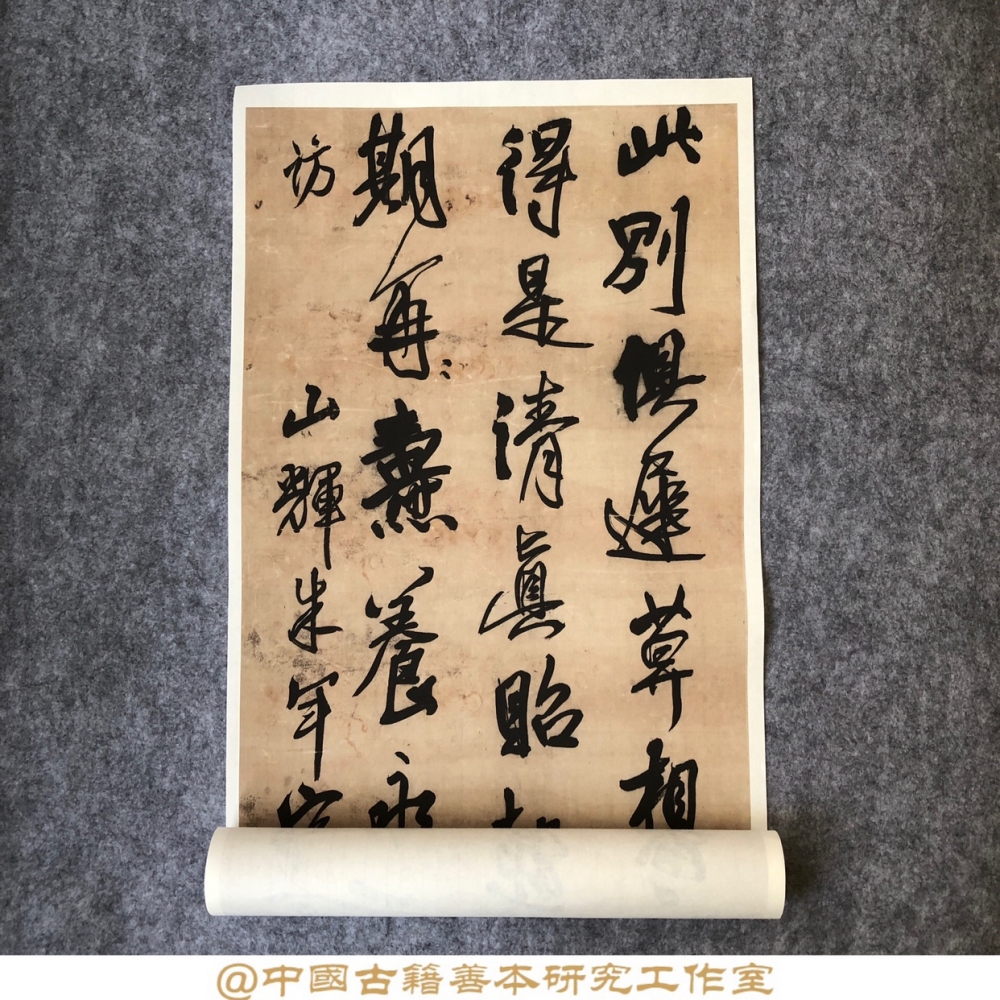 此別俱遲莫相
得是清真貽
期再燾養永
訪 山輝朱年
@中國古籍善本研究工作室